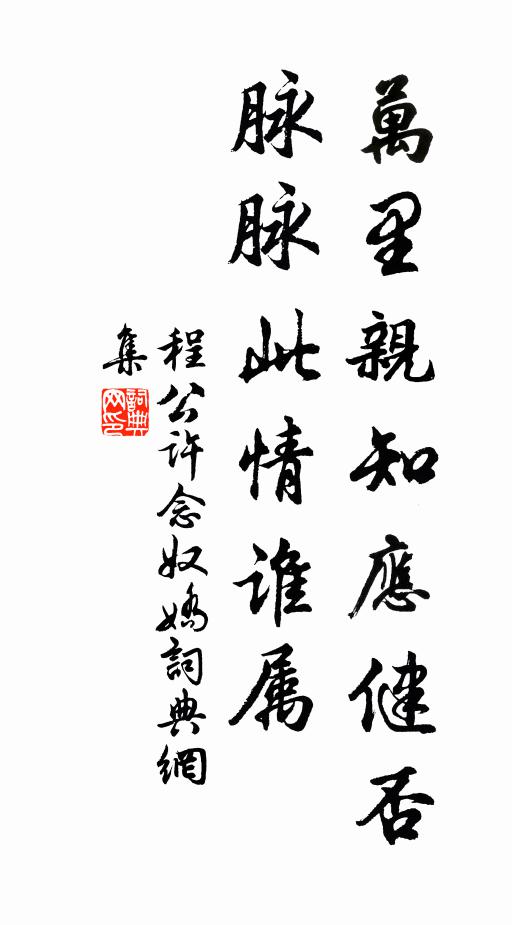 萬里親知應健否
脉脉此情谁属
程公许念奴嬌詞典網
集
詞典
网印